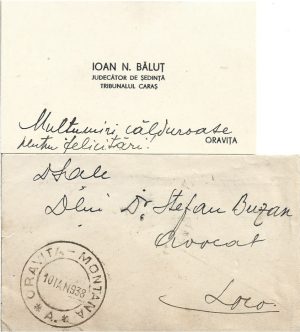 IOAN N. BĂLUȚ
JUDECĂTOR DE ȘEDINȚĂ
TRIBUNALUL CARAȘ
Multumiri călduroase
pentru felicitări.
ORAVIȚA
Dsale
Dlui Dr Ștefan Buzan
avocat
Loco.
ORAVITA - MONTANA
10 IAN 938
* A *